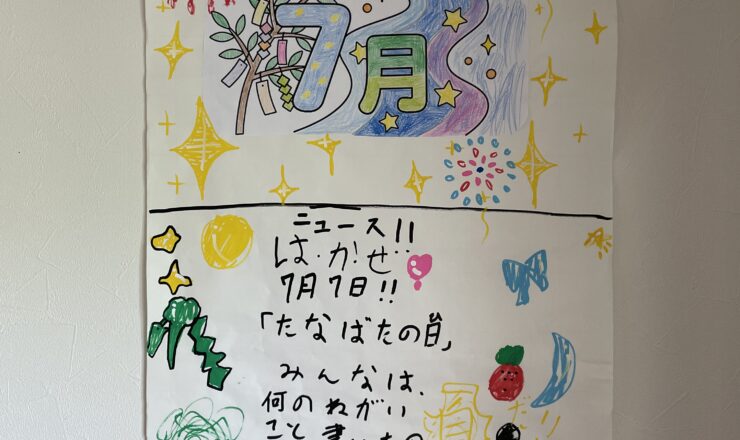 7月
ニュース!!
は・か・せ・・
7月7日!!
「たなばたの日」
みんなは、
何のねがい
こと